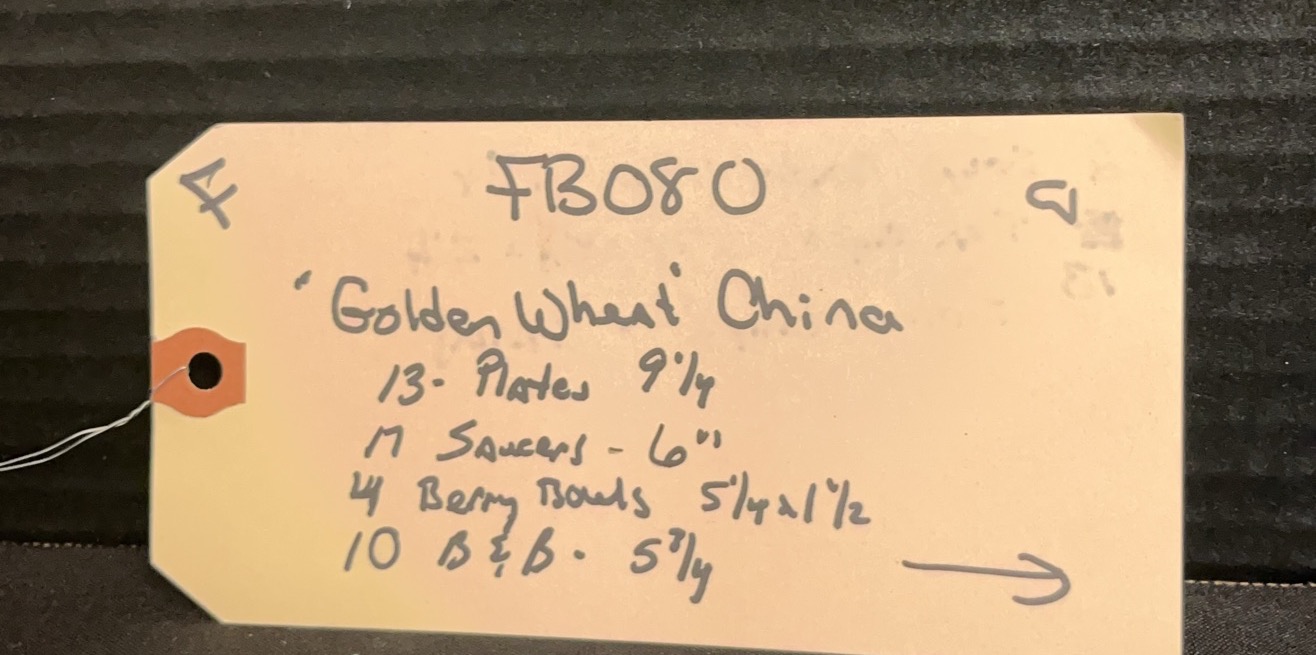 F FB080 G
"Golden Wheat" China
13- Plates 9 1/4
17 Saucers - 6"
4 Berry Bowls 5 1/4 x 1 1/2
10 B & B - 5 3/4
→